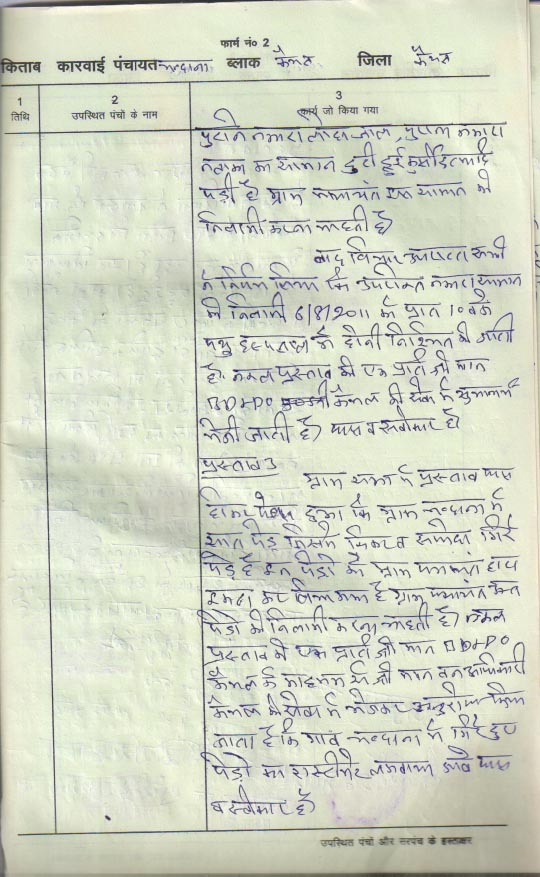 फार्म नं० 2
किताब कारवाई पंचायत चन्दाना ब्लाक कैथल जिला कैथल
1 2 3
तिथि उपस्थित पंचों के नाम कार्य जो किया गया
पुराने नकारा लोहा जाल, पुराना नकारा
का सामान टुटी हुई कुर्सी इत्यादि
पड़ी है ग्राम पंचायत इस सामान की
निलामी करना चाहती है।
बाद विचार उपरान्त सभी
ने निर्णय लिया कि उपरोक्त नकारा सामान
की निलामी 6/8/2011 को प्रात 10 बजे
पशु हस्पताल में होनी निश्चित की जाती
है। नकल प्रस्ताव की एक प्रति श्री मान
BD&PO कैथल की सेवा में सूचनार्थ
भेजी जाती है। पास व स्वीकार है।
प्रस्ताव 3
ग्राम सभा में प्रस्ताव पास
होकर पेश हुआ कि ग्राम चन्दाना में
सात पेड़ जिसमें किकर व सफेदा गिरे
पड़े है इन पेड़ो को ग्राम पंचायत द्वारा
इकट्ठा कर लिया गया है ग्राम पंचायत इन
पेड़ो की निलामी करना चाहती है। नकल
प्रस्ताव की एक प्रति श्री मान BD&PO
कैथल के माध्यम से श्री मान वन अधिकारी
कैथल की सेवा में भेजकर अनुरोध किया
जाता है कि गांव चन्दाना में गिरे हुए
पेड़ो का एस्टीमेट लगवाया जावे पास
व स्वीकार है।
उपस्थित पंचों और सरपंच के हस्ताक्षर